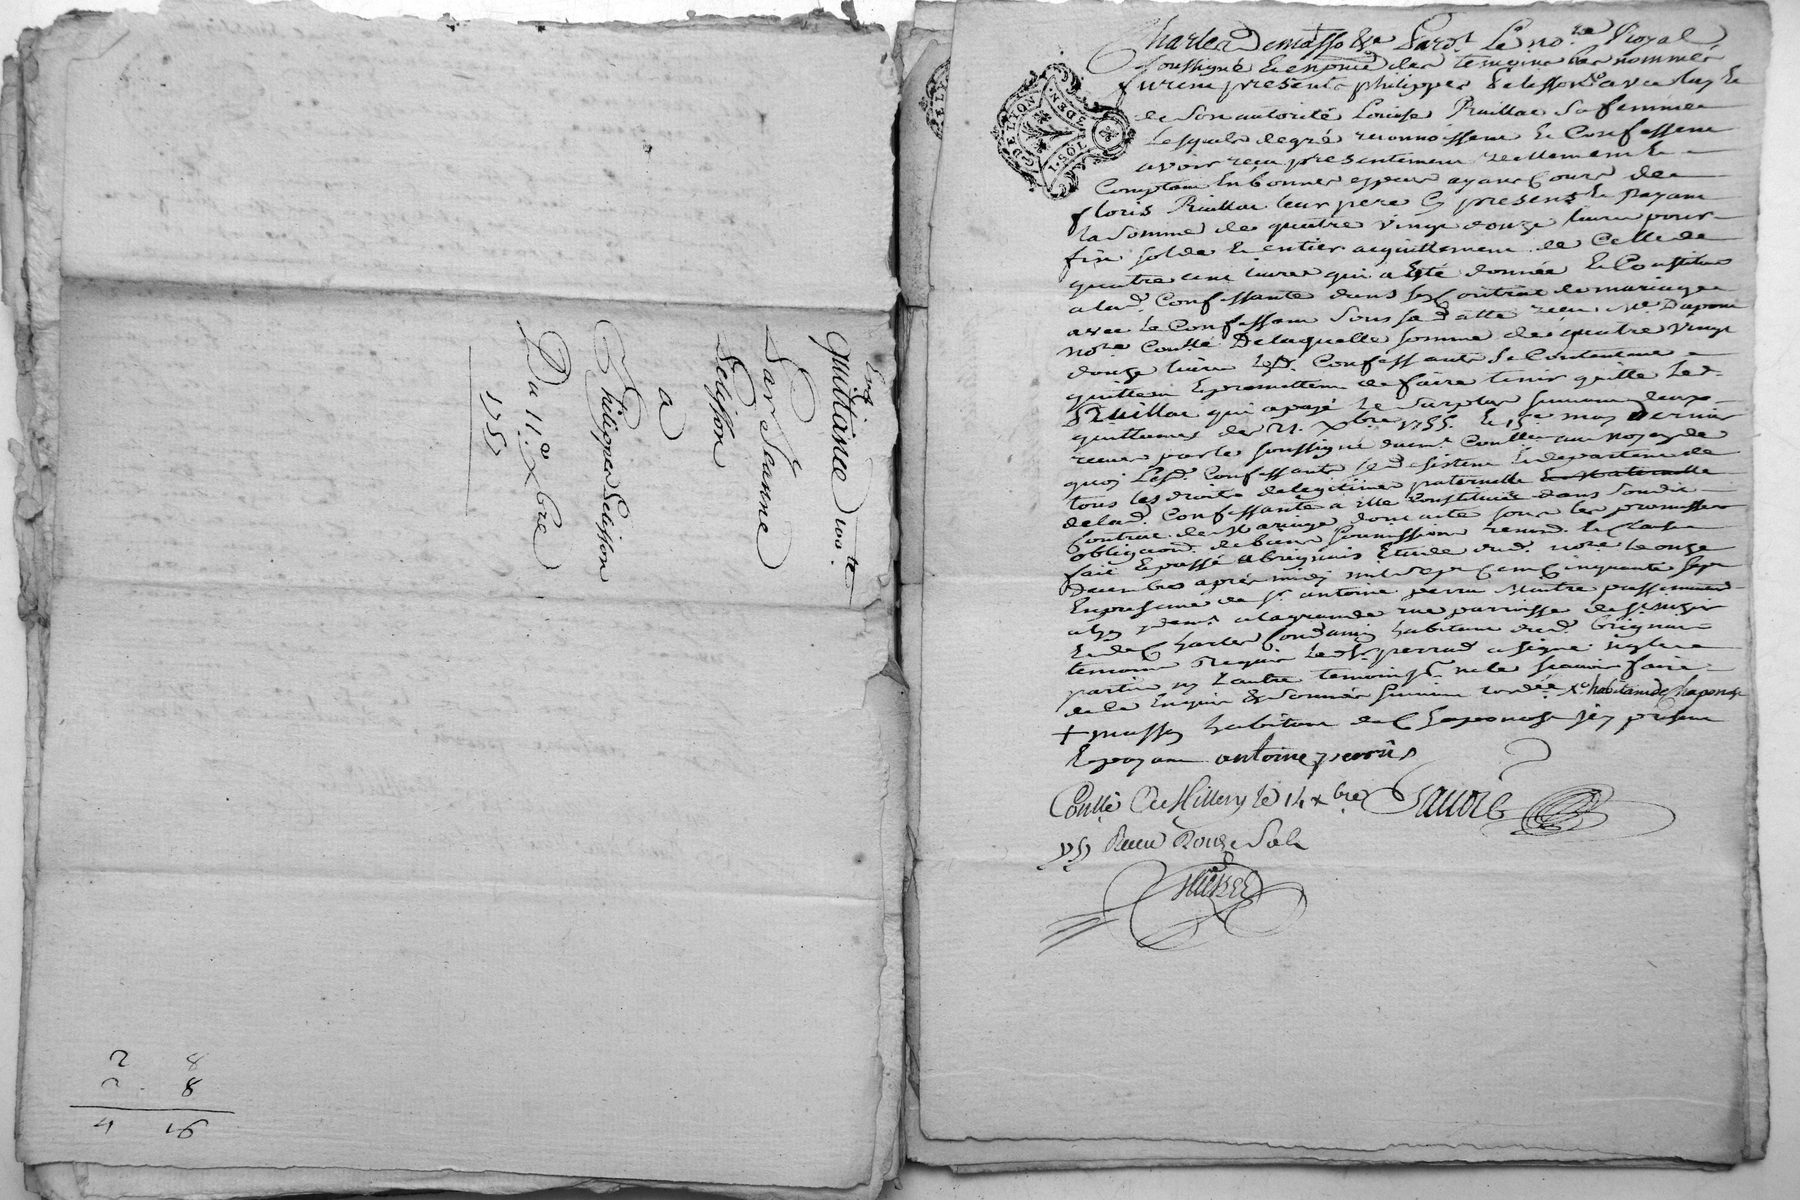 Enq.
quittance 100 te
Par Jeanne
Pelisson
a
Philippes Pelisson
Du 11.e Xbre
1757
2 8
2 8
4 16
GDELYON
I·SOL
DEN
Charles Demasso Par Le no.re Royal
soussigné et en presence des temoins bas nommés
furent presents philippes Pelisson avec luy et
de son autorité Louise Ruillat sa femme
Lesquels de gré reconnoissent et Confessent
avoir reçu presentement reellement et
Comptant En bonnes especes ayant Cours de
floris Ruillat leur pere Cy present et payant
la somme de quatre vingt douze livres pour
fin solde et entier acquittement de Celle de
quatre cent livres qui a Eté donnée et Constituée
a lad. Confessante dans son Contrat de mariage
avec le Confessant sous sa datte reçu M.e Dupont
no.re Controllé De laquelle somme de quatre vingt
douze livres lesd. Confessants se Contentent
quittent Et promettent de faire tenir quitte led.
Ruillat qui a payé le surplus suivant
quittances des 21. Xbre 1755. et 15e may Dernier
receues par le soussigné duement Controllées au moyen de
quoy Lesd. Confessants se desistent et departent de
tous les droits de legitime paternelle et maternelle
de lad. Confessante a elle Constituée dans sondit
Contrat de Mariage dont acte sous les promesses
obligaons. de biens soumissions renons. et Clauses
fait et passé a brignais Etude dud. no.re le onze
Decembre après midy mil sept Cent Cinquante sept
En presence de sr. antoine perrus Maitre passementier
a lyon y demt. a la grande rue parroisse de st. nizier
Et de Charles habitant dud. brignais
temoins requis led. sr. perrus a signé non les
parties ny L'autre temoin pour ne le scavoir faire
de ce Enquis & sommés suivant X habitant de Chaponost
+ habitant de Chaponost icy present
Et payant antoine perrus
Contlé a Millery le 14 Xbre
1757 Receu Douze Sols